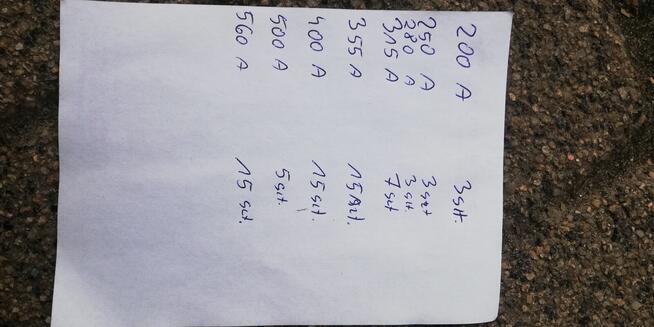 200 A 3szt.
250 A 3szt
280 A 3szt
315 A 7szt
355 A 15szt.
400 A 15szt.
500 A 5szt.
560 A 15szt.